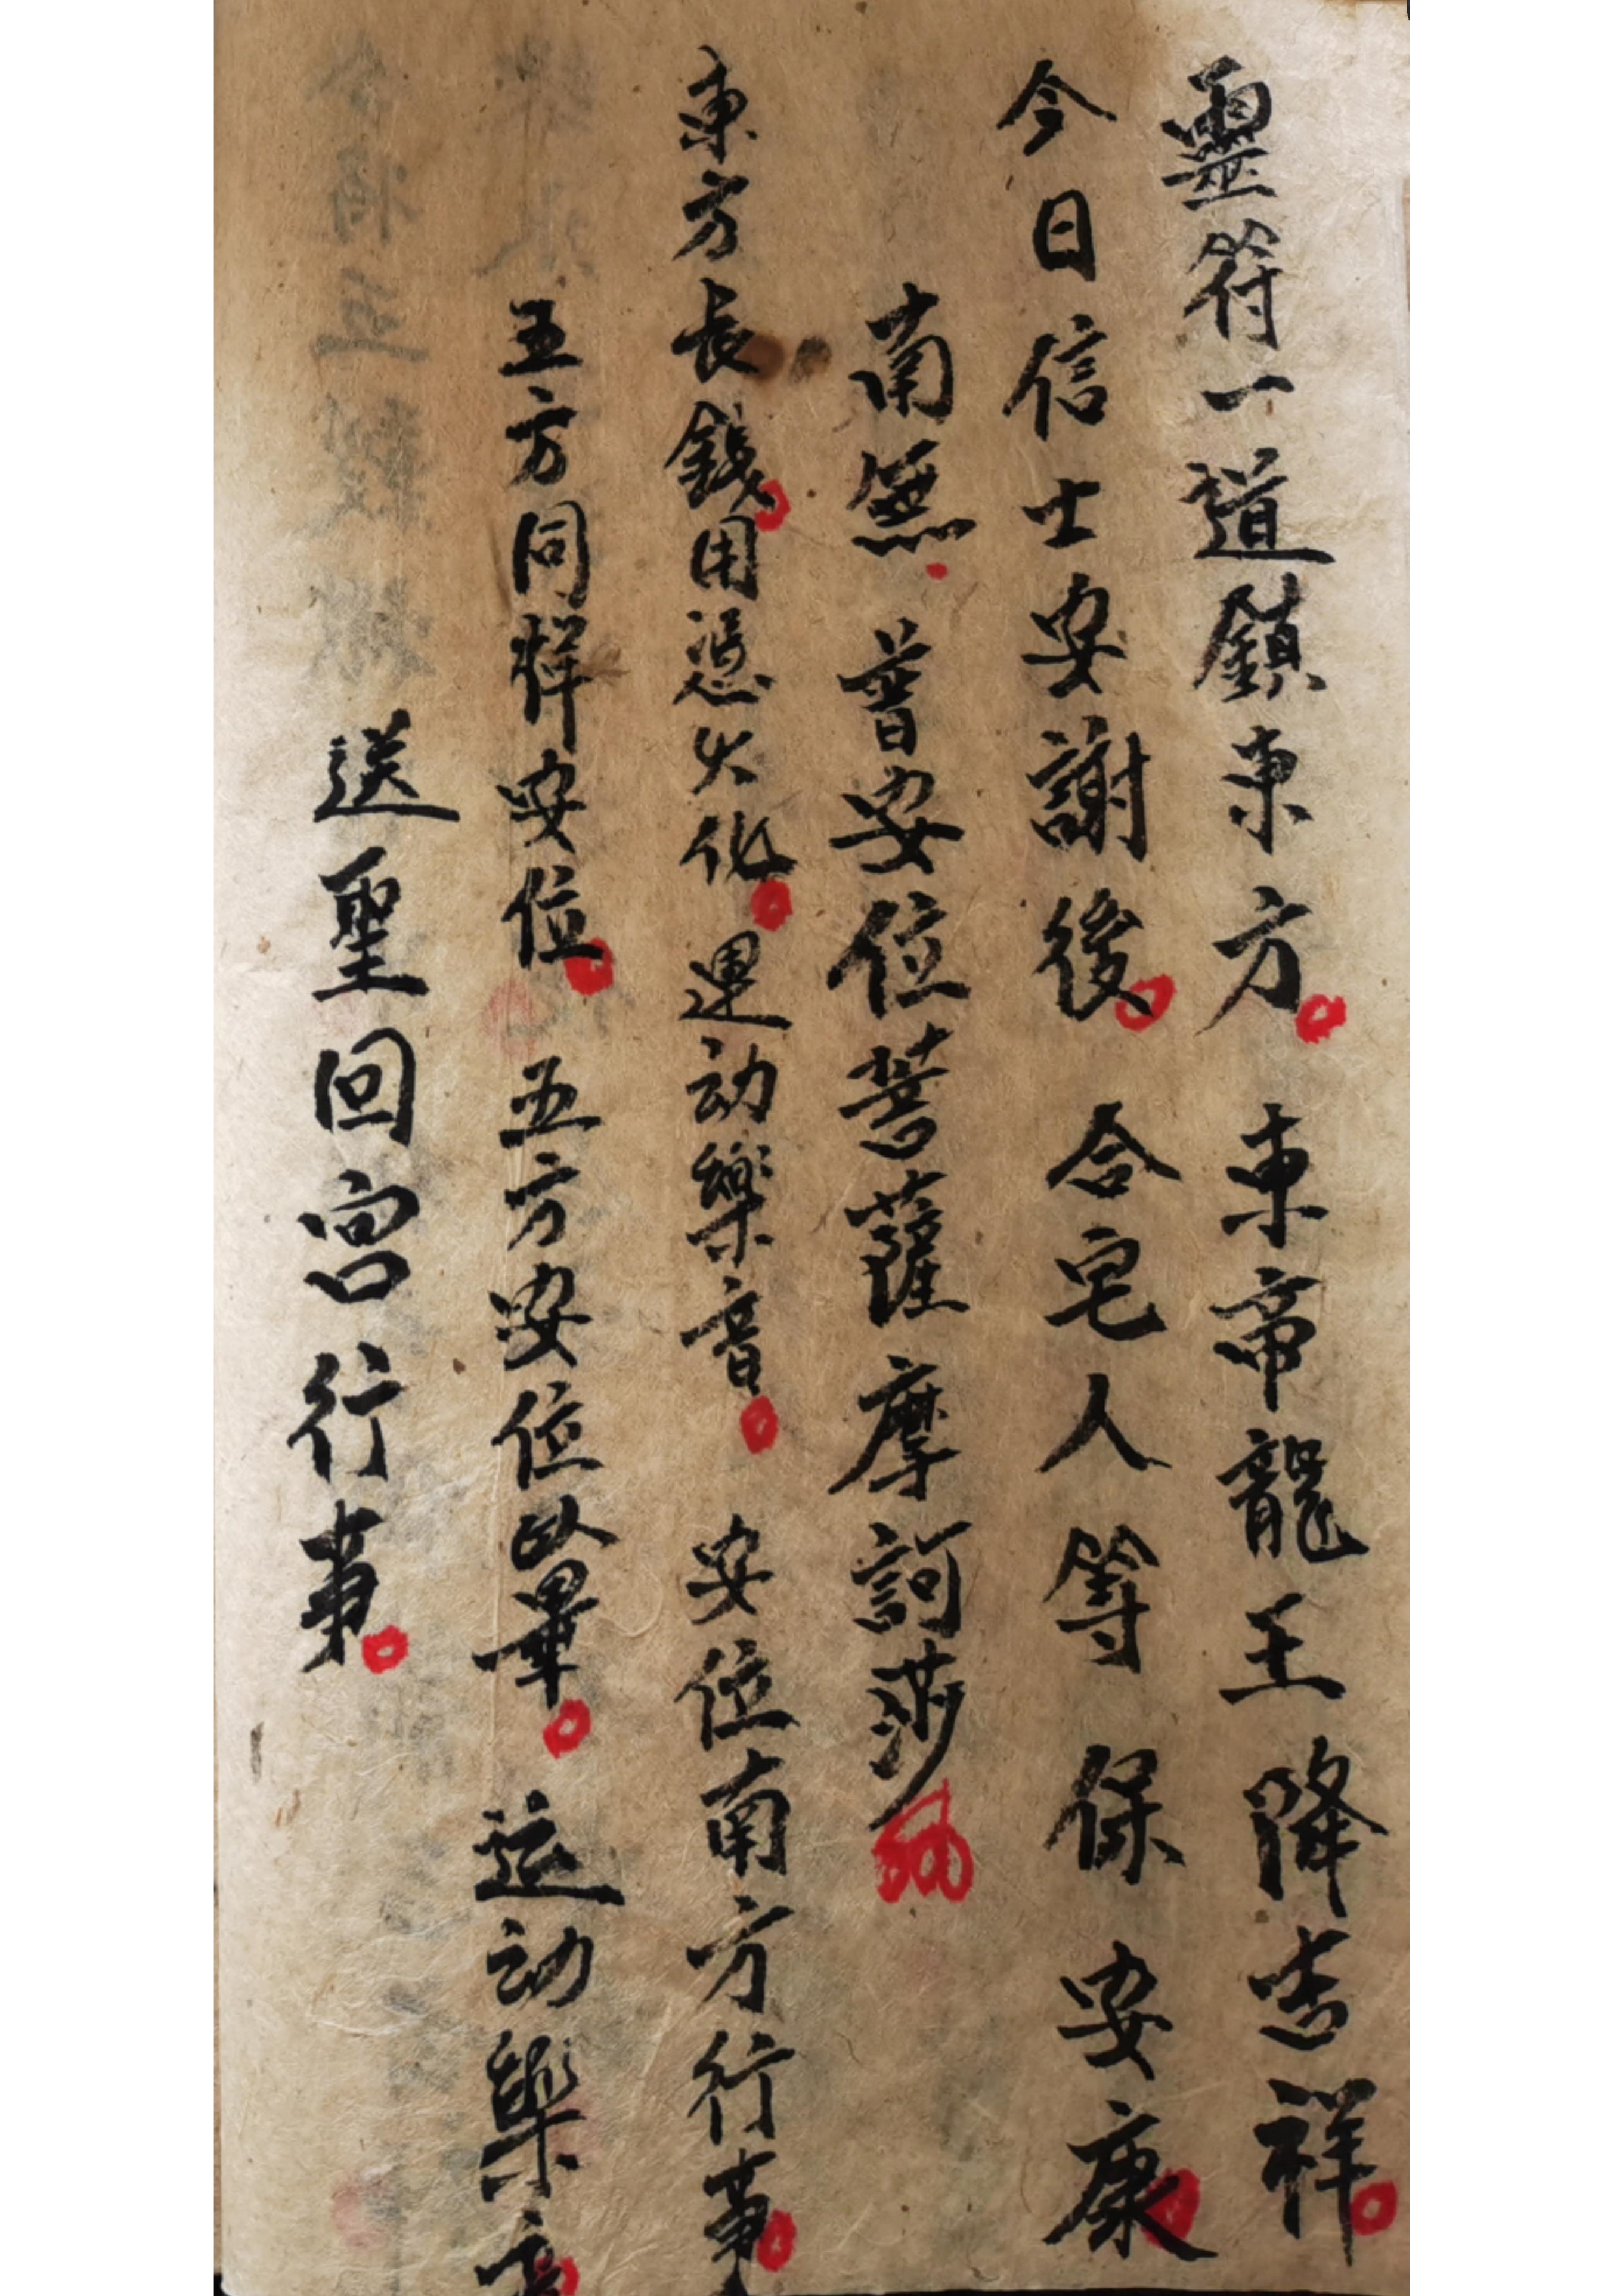 靈符一道鎮東方。東帝龍王降吉祥。
今日信士安謝後。合宅人等保安康。
南無。普安位菩薩摩訶莎
東方長錢。用憑火化。運动樂音。安位南方行事。
五方同祥安位。五方安位以畢。运动樂音。
送聖回宮行事。